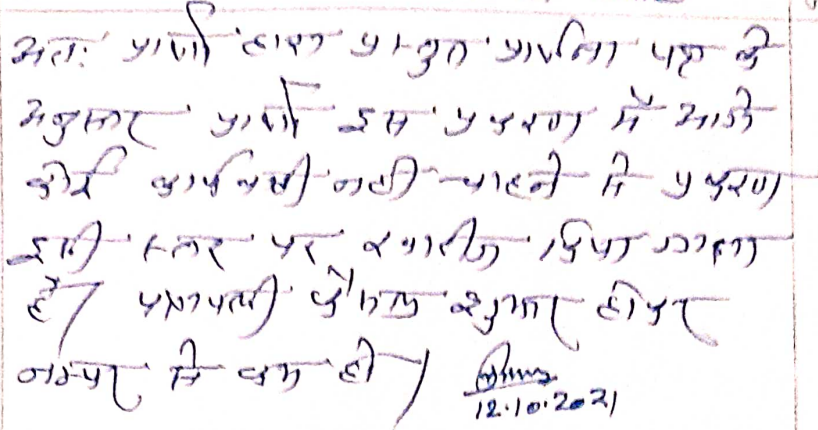 अतः प्रार्थी द्वारा प्रस्तुत प्रार्थना पत्र के
अनुसार प्रार्थी इस प्रकरण में आगे
कोई कार्यवाही नहीं चाहने से प्रकरण
इसी स्तर पर खारीज किया जाता
है। पत्रावली फैसल शुमार होकर
नम्बर से कम हो।
12.10.2021